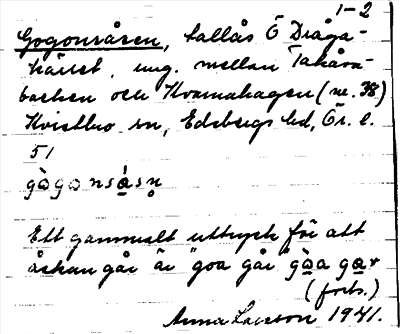 1-2
Gogonsåsen, kallås Ö Dråga-
kärret, ung. mellan Takåsa-
backen och Kvarnahagen (nr. 38)
Kvistbro sn, Edsbergs hd, Ör. l.
51
gògonsá̱sn̥
Ett gammalt uttryck för att
åskan går är "goa går" gò̱a ga̱r
(forts.)
Anna Larsson 1941.